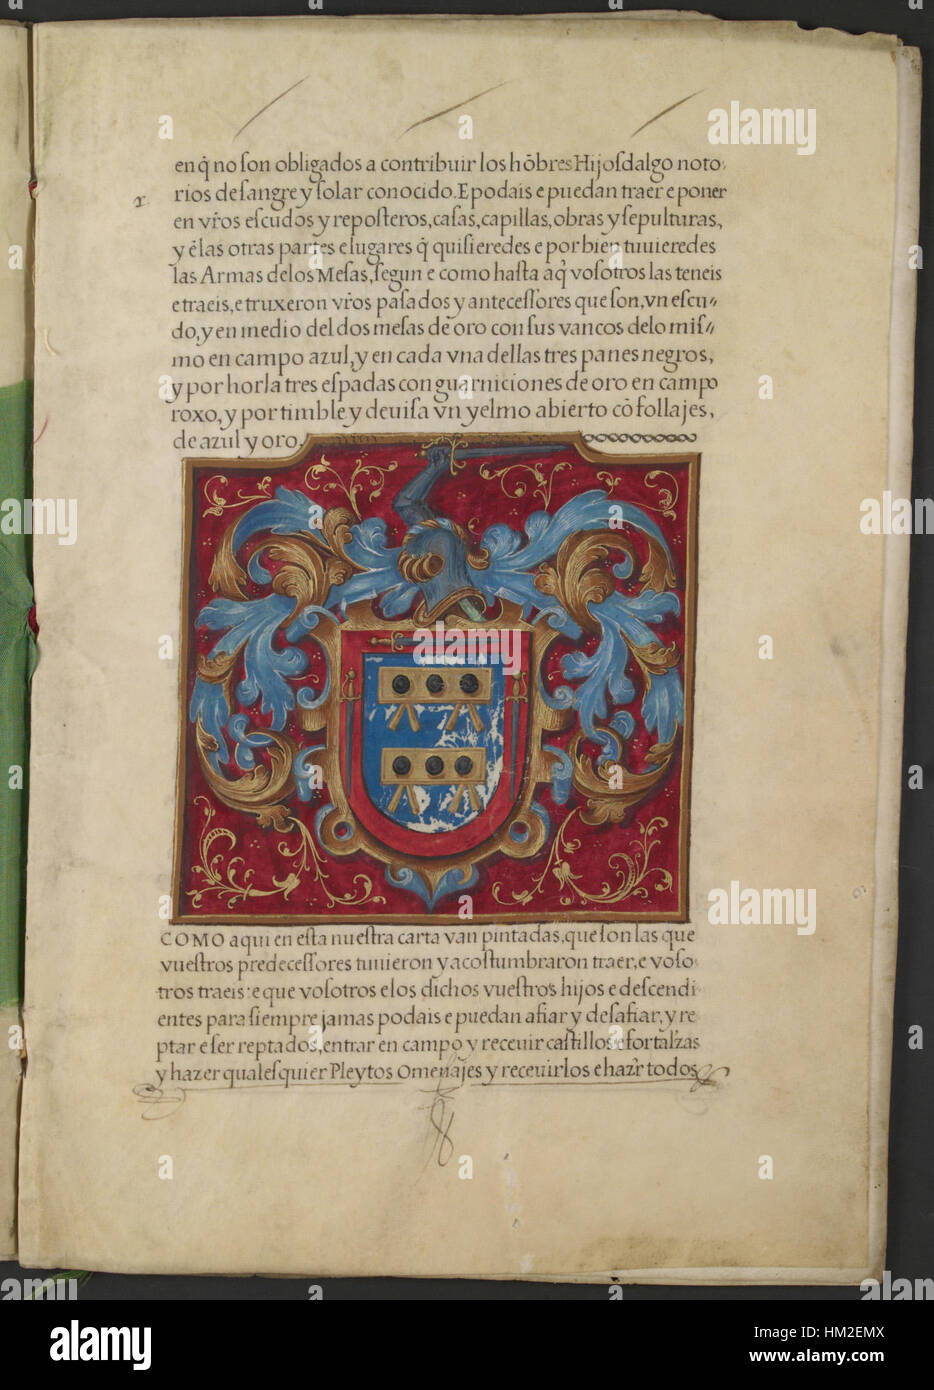 en q̃ no son obligados a contribuir los hõbres Hijosdalgo noto
rios de sangre y solar conocido. E podais e puedan traer e poner
en vr̃os escudos y reposteros, casas, capillas, obras y sepulturas,
y ẽlas otras partes e lugares q̃ quisieredes e por bien tuuieredes
las Armas delos Mesas, segun e como hasta aq̃ vosotros las teneis
e traeis, e truxeron vr̃os pasados y antecessores que son, vn escu
do, y en medio del dos mesas de oro con sus vancos delo mis
mo en campo azul, y en cada vna dellas tres panes negros,
y por horla tres espadas con guarniciones de oro en campo
roxo, y por timble y deuisa vn yelmo abierto cõ follajes,
de azul y oro.
COMO aqui en esta nuestra carta van pintadas, que son las que
vuestros predecessores tuuieron y acostumbraron traer, e voso
tros traeis: e que vosotros e los dichos vuestros hijos e descendi
entes para siempre jamas podais e puedan afiar y desafiar, y re
ptar e ser reptados, entrar en campo y receuir castillos e fortalzas
y hazer qualesquier Pleytos Omenajes y receuirlos e hazr todos
a alamy
alamy
Image ID: HM2EMX
www.alamy.com